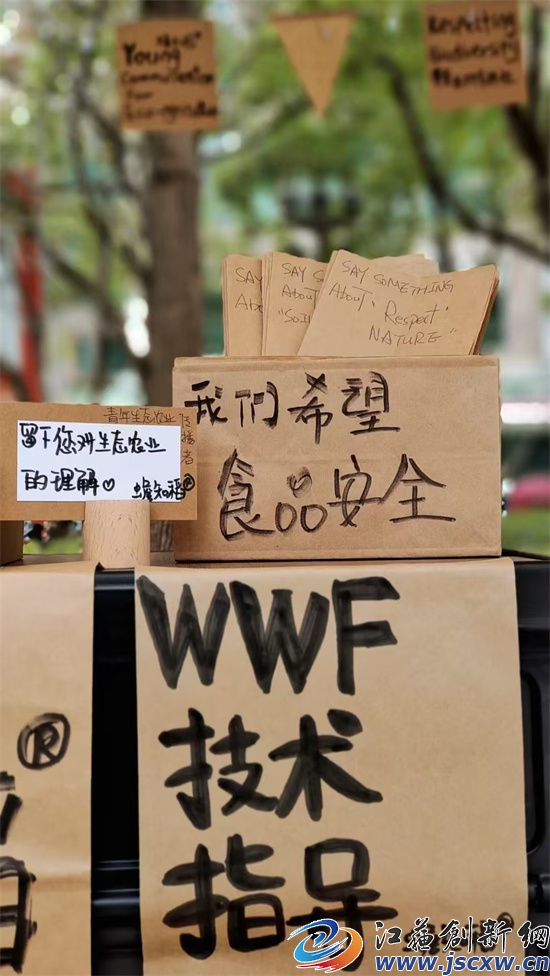 Young
Communication
for
Eco-agriculture
Respecting
Biodiversity
SAY
About
SAY S
About
"Soil
SAY SOMETHING
About "Respect
NATURE"
我们希望
食品安全
青年生态农业传播者
留下您对生态农业
的理解♡
蟾知稻®
WWF
技术
指导
®
江苏创新网
www.jscxw.cn